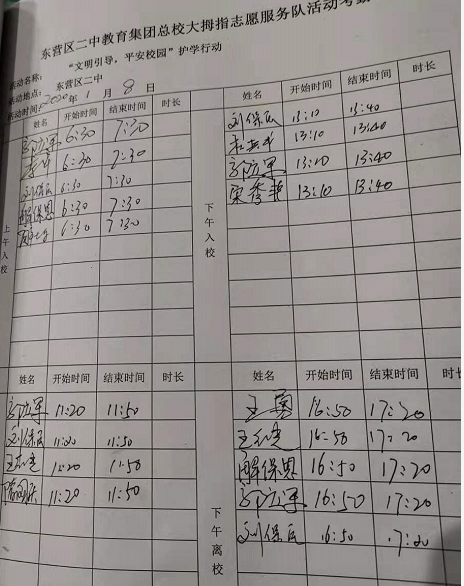 东营区二中教育集团总校大拇指志愿服务队活动考勤
活动名称： “文明引导，平安校园”护学行动
活动地点： 东营区二中
活动时间：2020年 1 月 8 日
姓名 开始时间 结束时间 时长
6:30 7:30
6:30 7:30
刘保民 6:30 7:30
解保恩 6:30 7:30
6:30 7:30
上午入校
姓名 开始时间 结束时间
刘保民 13:10 13:40
13:10 13:40
13:10 13:40
宋秀艳 13:10 13:40
下午入校
姓名 开始时间 结束时间 时长
11:20 11:50
刘保民 11:20 11:50
11:20 11:50
11:20 11:50
姓名 开始时间 结束时间 时长
王勇 16:50 17:20
16:50 17:20
解保恩 16:50 17:20
16:50 17:20
刘保民 16:50 17:20
下午离校